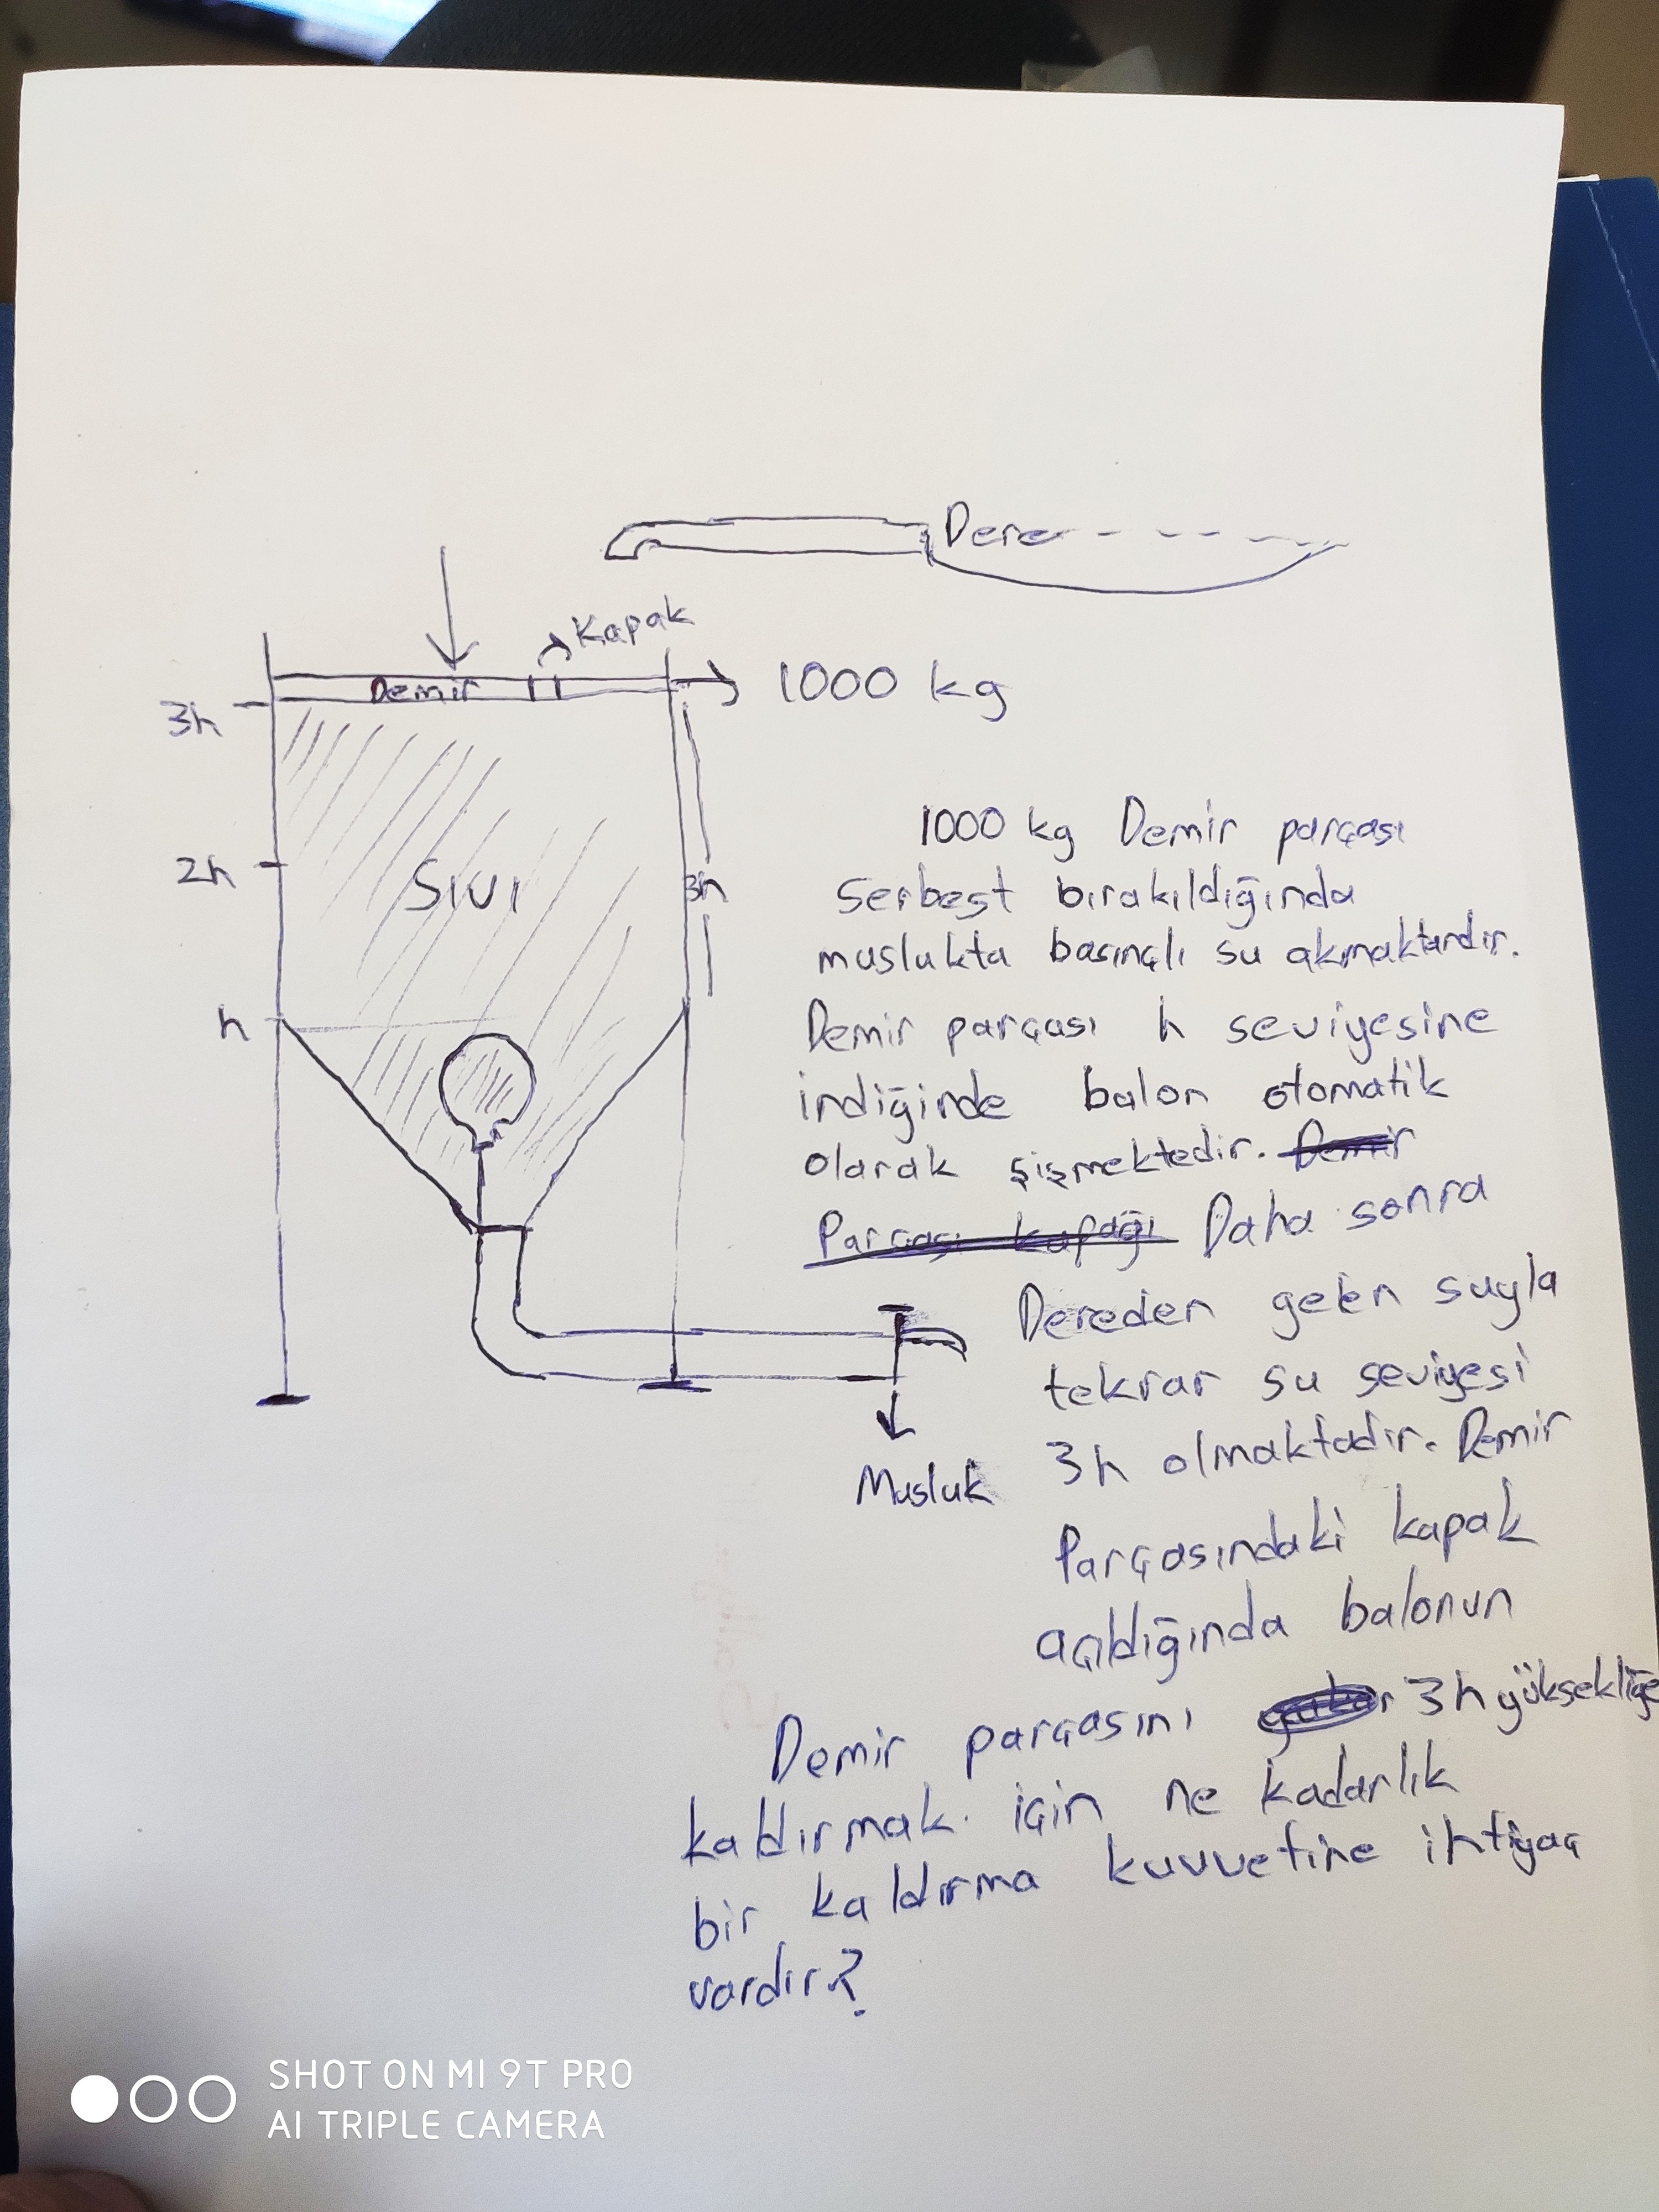 Dere
Kapak
Demir
1000 kg
3h
2h
SIVI
3h
h
Musluk
1000 kg Demir parçası
Serbest bırakıldığında
muslukta basınçlı su akmaktadır.
Demir parçası h seviyesine
indiğinde balon otomatik
olarak şişmektedir. Demir
Parçası kapağı Daha sonra
Dereden gelen suyla
tekrar su seviyesi
3h olmaktadır. Demir
Parçasındaki kapak
açıldığında balonun
Demir parçasını 3h yüksekliğe
kaldırmak için ne kadarlık
bir kaldırma kuvvetine ihtiyaç
vardır?
SHOT ON MI 9T PRO
AI TRIPLE CAMERA